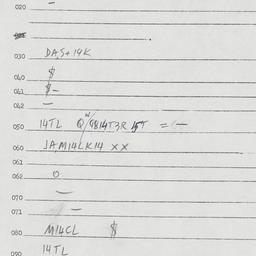 020 —
030 DAS+14K
040 $
041 $–
042 —
050 14TL Q/9814T3R 15T = —
060 JAM14LK14 XX
061 O
062
070 —
071 —
080 M14CL $
090 14TL